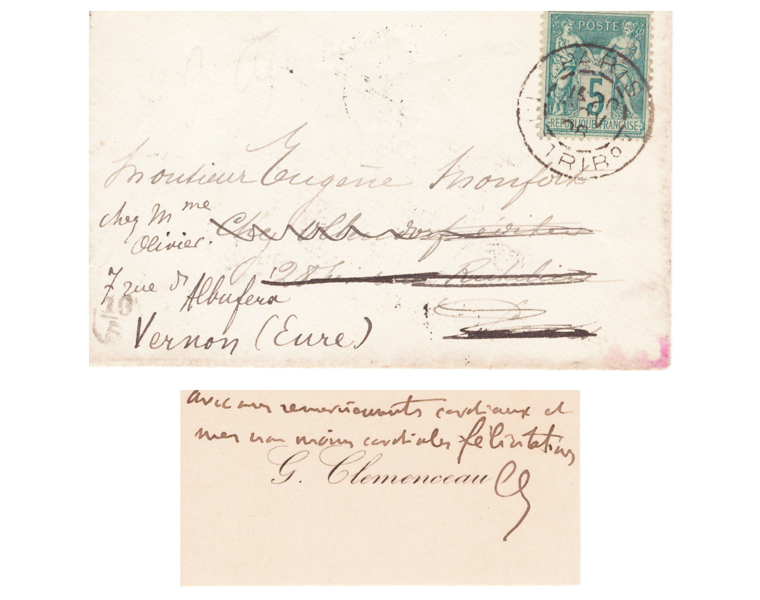 POSTE
5
REPUBLIQUE FRANÇAISE
PARIS
Monsieur Eugène Monfort
chez Mme
Olivier.
Chez Ollendorf éditeur
7 rue d'Albufera
28 Richelieu
Vernon (Eure)
avec mes remerciements cordiaux et
mes non moins cordiales félicitations
G. Clemenceau